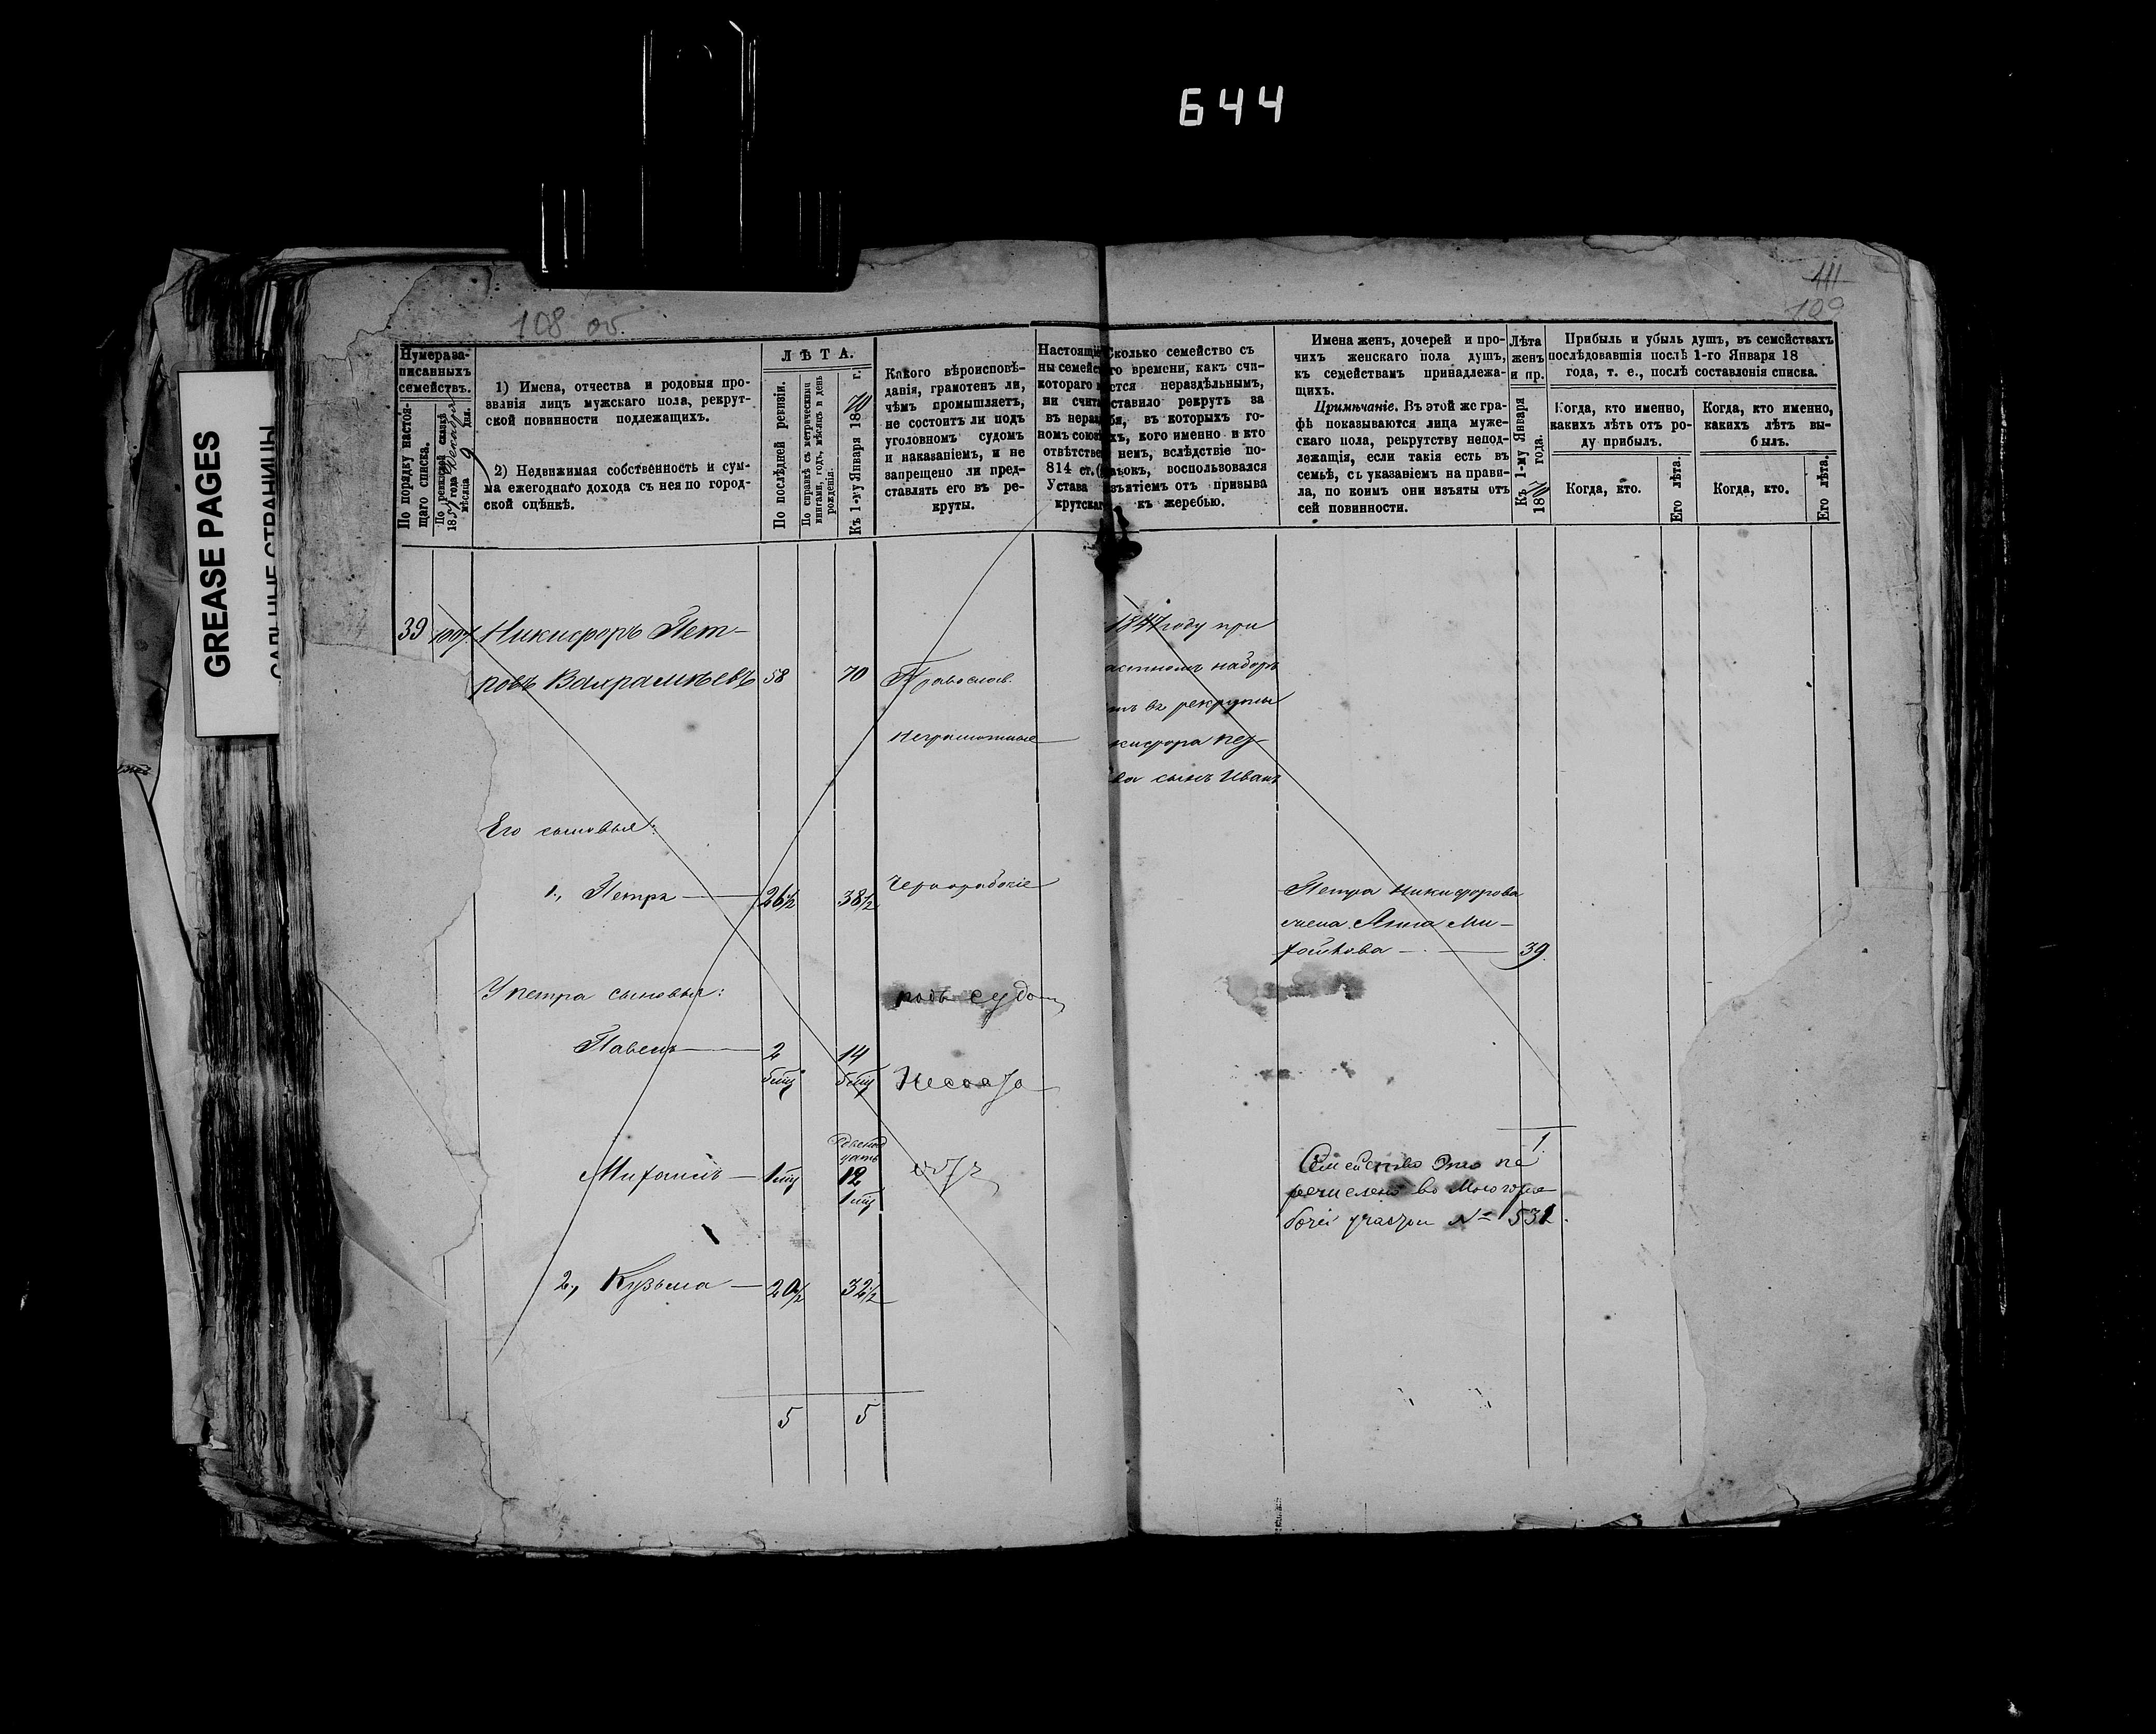 644
GREASE PAGES
САЛЬНЫЕ СТРАНИЦЫ
108 об.
111
109
Нумера за-
писанныхъ
семействъ.
По порядку настоя-
щаго списка.
По ревизской сказкѣ
1857 года Декабря
мѣсяца 9 дня.
1) Имена, отчества и родовыя про-
званія лицъ мужскаго пола, рекрут-
ской повинности подлежащихъ.
2) Недвижимая собственность и сум-
ма ежегоднаго дохода съ нея по город-
ской оцѣнкѣ.
ЛѢТА.
По послѣдней ревизіи.
По справкѣ съ метрическими
книгами, годъ, мѣсяцъ и день
рожденія.
Къ 1-му Января 1870 г.
Какого вѣроисповѣ-
данія, грамотенъ ли,
чѣмъ промышляетъ,
не состоитъ ли подъ
уголовномъ судомъ
и наказаніемъ, и не
запрещено ли пред-
ставлять его въ ре-
круты.
Настоящи
ны семейс
котораго
ни счита
въ нераз
номъ союз
отвѣтстве
814 ст.
Устава
крутскаг
Сколько семейство съ
го времени, какъ счи-
ется нераздѣльнымъ,
ставило рекрутъ за
бя, въ которыхъ го-
хъ, кого именно и кто
немъ, вслѣдствіе по-
атьокъ, воспользовался
зъятіемъ отъ призыва
къ жеребью.
Имена женъ, дочерей и про-
чихъ женскаго пола душъ,
къ семействамъ принадлежа-
щихъ.
Примѣчаніе. Въ этой же гра-
фѣ показываются лица муже-
скаго пола, рекрутству непод-
лежащія, если такія есть въ
семьѣ, съ указаніемъ на прави-
ла, по коимъ они изъяты отъ
сей повинности.
Лѣта
женъ
и пр.
Къ 1-му Января
1870 года.
Прибыль и убыль душъ, въ семействахъ
послѣдовавшія послѣ 1-го Января 18
года, т. е., послѣ составленія списка.
Когда, кто именно,
какихъ лѣтъ отъ ро-
ду прибылъ.
Когда, кто именно,
какихъ лѣтъ вы-
былъ.
Когда, кто.
Его лѣта.
Когда, кто.
Его лѣта.
39 Никифоръ Пет-
ровъ Вахрамѣевъ 58 70 Православ.
неграмотные
1847 году при
астномъ наборѣ
тъ въ рекруты
кифора Пет-
ва сынъ Иванъ
Его сыновья:
1., Петръ 26½ 38½ Чернорабочіе
Петра Никифорова
жена Анна Ми-
хайлова 39.
У Петра сыновья:
подъ судом
Павелъ 2 14
6 мц 6 мц
Михаилъ 1 мц 12
1 мц
1.
Семейство это пе
речислено во
бочій участок № 532.
2., Кузьма 20½ 32½
5 5